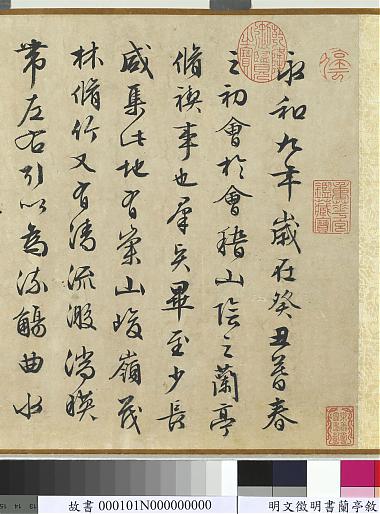 永和九年歲在癸丑暮春
之初會於會稽山陰之蘭亭
脩禊事也羣賢畢至少長
咸集此地有崇山峻嶺茂
林脩竹又有清流激湍暎
帶左右引以為流觴曲水
故書 000101N000000000
明文徵明書蘭亭敘